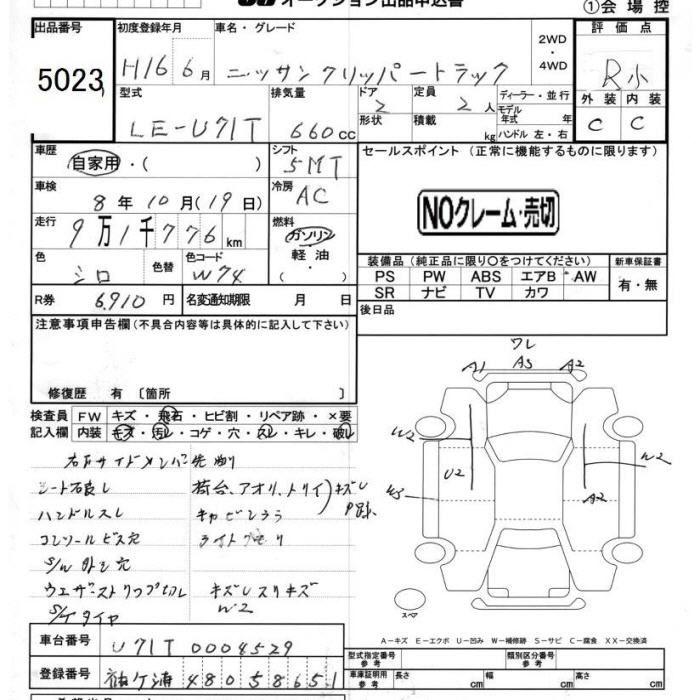 オークション出品申込書
①会場控
出品番号 初度登録年月 車名・グレード 評価点
5023 H16 6月 ニッサンクリッパートラック 2WD・4WD R小
型式 排気量 ドア 定員 ディーラー・並行 外装 内装
LE-U71T 660cc 2 2人 モデル年式 年 C C
形状 積載 kg ハンドル 左・右
車歴 自家用・( ) シフト 5MT セールスポイント (正常に機能するものに限ります)
車検 8年10月(19日) 冷房 AC
NOクレーム・売切
走行 9万1千776km 燃料 ガソリン・軽油・( )
色 シロ 色替 色コード W74
装備品 (純正品に限り○をつけてください) 新車保証書
PS PW ABS エアB AW 有・無
SR ナビ TV カワ
R券 6,910円 名変通知期限 月 日
後日品
注意事項申告欄 (不具合内容等は具体的に記入して下さい)
ワレ
A1 A3 A2
修復歴 有 [箇所 ]
検査員 FW キズ・飛石・ヒビ割・リペア跡・×要
記入欄 内装 キズ・汚レ・コゲ・穴・スレ・キレ・破レ
W2 U2 W2
W3 A2
右前サイドメンバー先曲り
ハンドルスレ キャビンうら
コンソールビス穴 ライトクモリ
ウエザーストリップ切レ キズレスリキズ
S/Tタイヤ W2
スペア
A-キズ E-エクボ U-凹み W-補修跡 S-サビ C-腐食 XX-交換済
車台番号 U71T 0004529
型式指定番号 参考 類別区分番号 参考
登録番号 袖ケ浦 480 5 8651
車庫証明用 参考 長さ cm 幅 cm 高さ cm